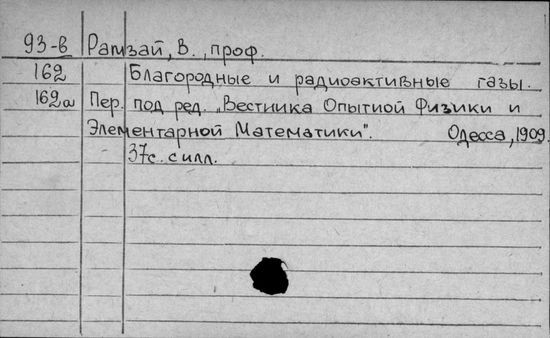 93-в Рамзай, В., проф.
162 Благородные и радиоактивные газы.
162а Пер. под ред. „Вестника Опытной Физики и
Элементарной Математики". Одесса, 1909.
37с. с илл.